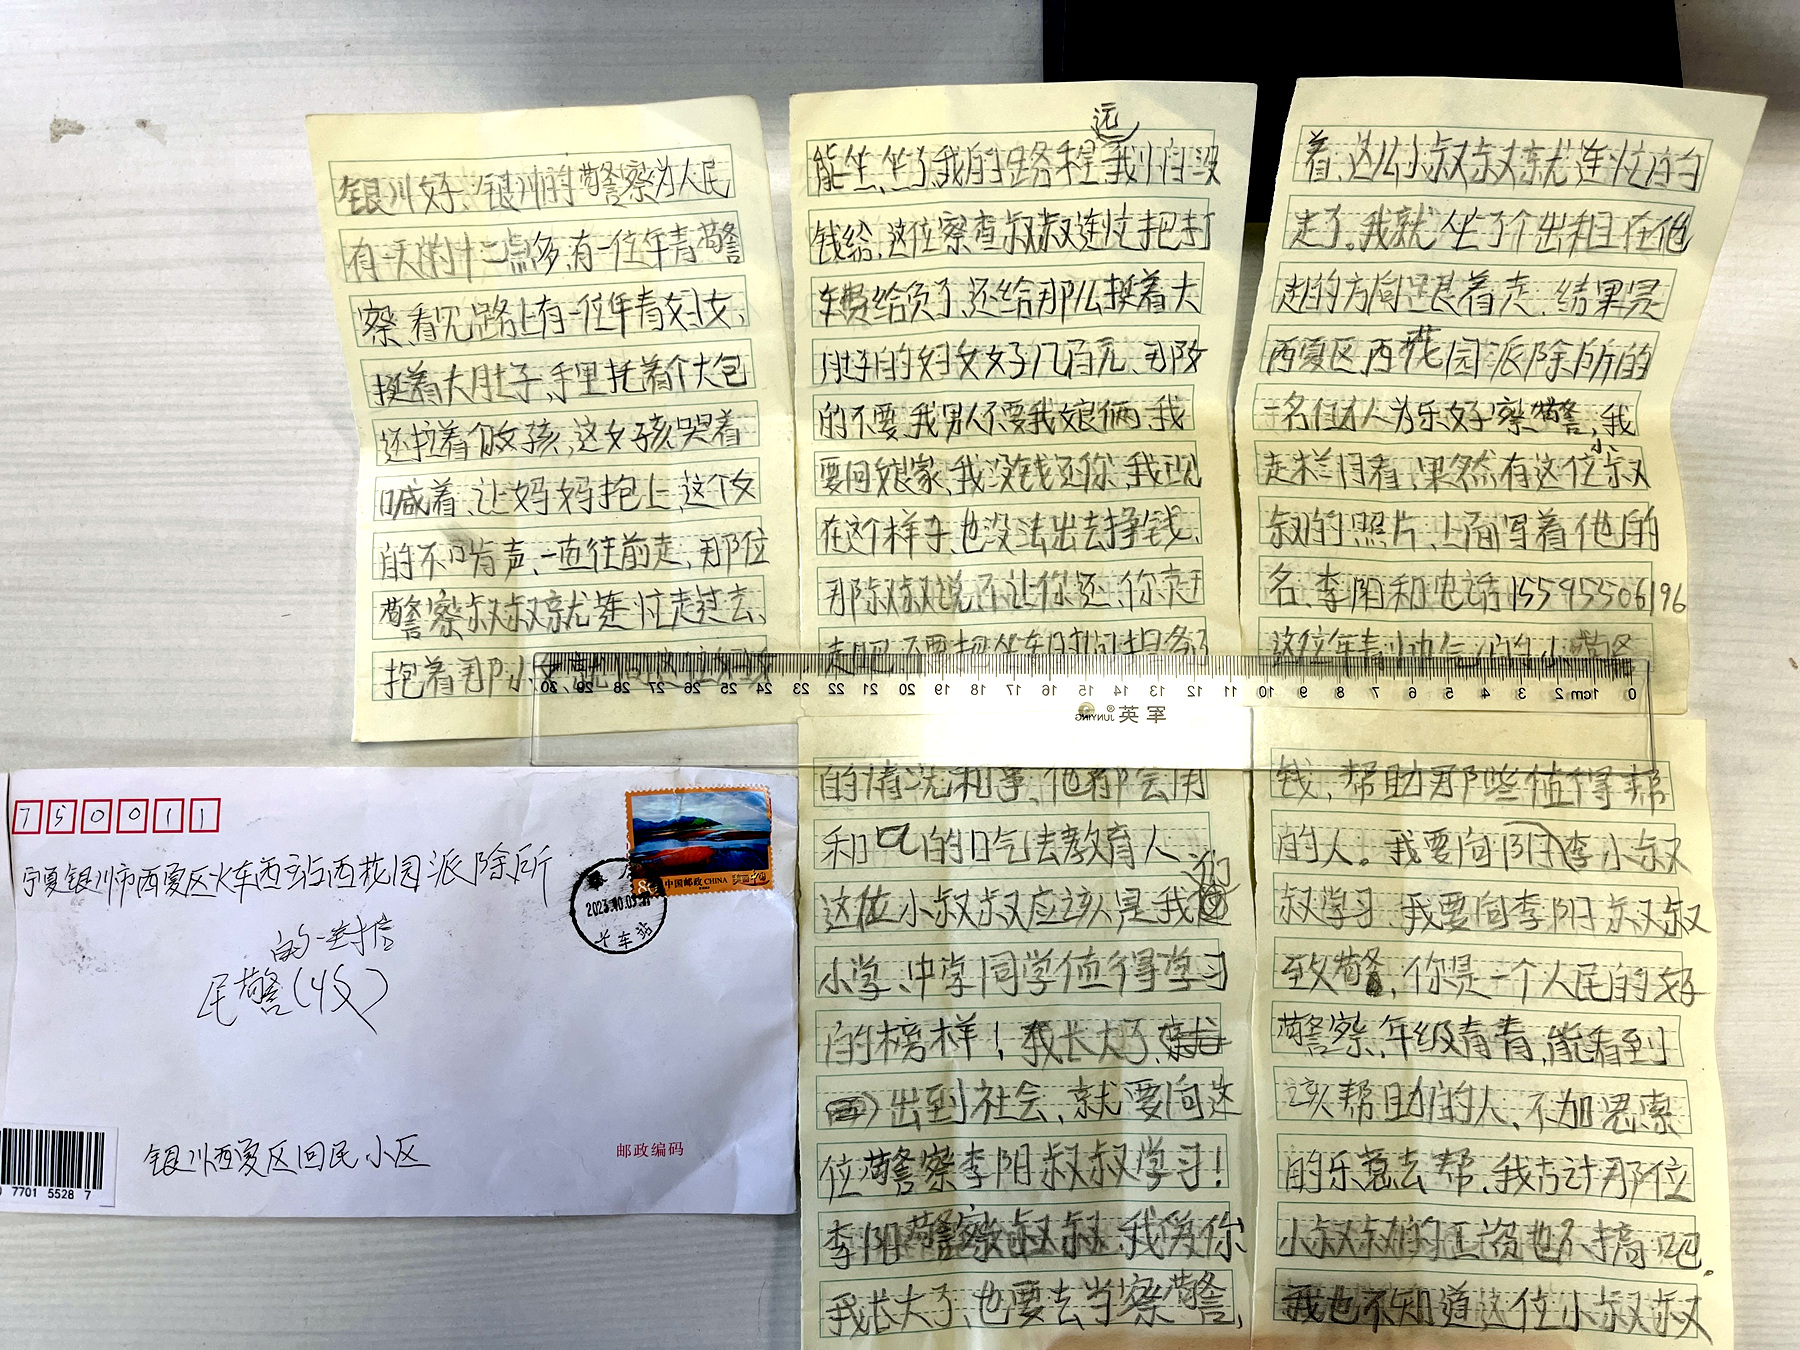 银川好、银川的警察为人民
有一天的十二点多,有一位年青警
察、看见路上有一位年青妇女、
挺着大肚子、手里托着个大包
还拉着个女孩,这女孩哭着
喊着、让妈妈抱上、这个女
的不口肯声、一直往前走、那位
警察叔叔就连忙走过去、
抱着那小女
远
能坐、坐了、我的路程 我 没
钱给,这位察查叔叔连忙把打
车费给负了、还给那么挺着大
肚子的妇女女子几百元、那女
的不要、我男人不要我娘俩、我
要回娘家、我没钱还你、我现
在这个样子、也没法出去挣钱、
那叔叔说不让你还、你走
走吧、不要把坐车时间
着、这么小叔叔就连忙
走了。我就坐了个出租在他
走的方向跟着走、结果是
西夏区西花园派除所的
一名任人为乐好察警,我
小
走栏问看,果然有这位叔
叔的照片、上面写着他的
名、李阳和电话15595506196
这位年青
30 29 28 27 26 25 24 23 22 21 20 19 18 17 16 15 14 13 12 11 10 9 8 7 6 5 4 3 2 1cm 0
军英
JUNYING
的情况和事、他都会用
和 的口气去教育人
们
这位小叔叔应该是我
小学、中学同学值得学习
的榜样!我长大了、就
出到社会、就要向这
位警察李阳叔叔学习!
李阳警察叔叔、我爱你
我长大了、也要去当察警,
钱、帮助那些值得帮
的人。我要向阳李小叔
叔学习、我要向李阳叔叔
致警,你是一个人民的好
警察,年级青青,能看到
该帮助的人,不加思索
的乐意去帮、我古计那位
小叔叔的工资也不搞吧.
我也不知道这位小叔叔
750011
宁夏银川市西夏区火车西站西花园派除所
的一封信
民警(收)
中国邮政 CHINA
2023.10.03
火车站
银川西夏区回民小区
邮政编码
7701 5528 7